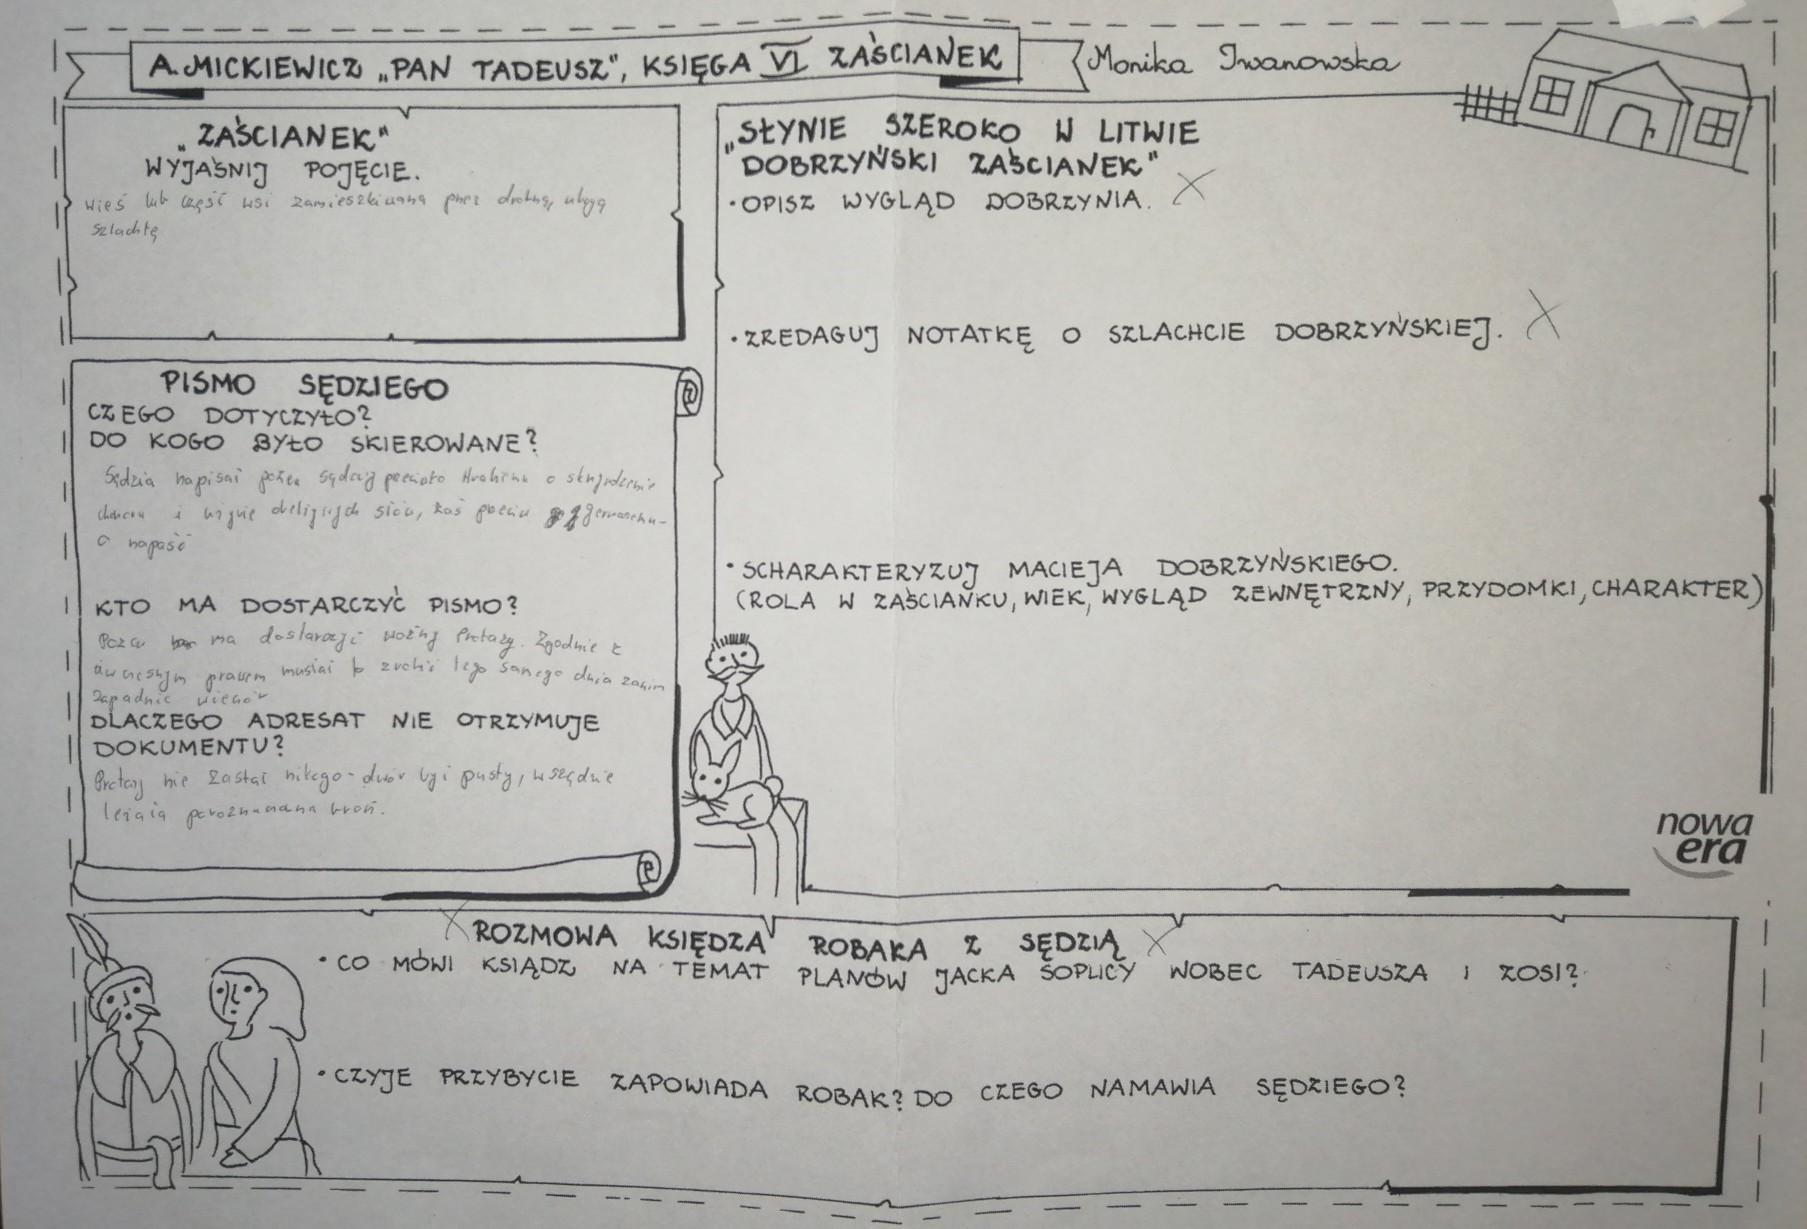 A. MICKIEWICZ „PAN TADEUSZ", KSIĘGA VI ZAŚCIANEK
Monika Iwanowska
„ZAŚCIANEK"
WYJAŚNIJ POJĘCIE.
wieś lub część wsi zamieszkiwana przez drobną, ubogą
szlachtę
PISMO SĘDZIEGO
CZEGO DOTYCZYŁO?
DO KOGO BYŁO SKIEROWANE?
Sędzia napisał pozew sądowy przeciwko Hrabiemu o
i użycie obelżywych słów, zaś przeciw Gerwazemu -
o napaść
KTO MA DOSTARCZYĆ PISMO?
Pozew ma dostarczyć woźny Protazy. Zgodnie z
ówczesnym prawem musiał to zrobić tego samego dnia zanim
zapadnie wieczór
DLACZEGO ADRESAT NIE OTRZYMUJE
DOKUMENTU?
Protazy nie zastał nikogo - dwór był pusty, wszędzie
leżała porozrzucana broń.
„SŁYNIE SZEROKO W LITWIE
DOBRZYŃSKI ZAŚCIANEK"
• OPISZ WYGLĄD DOBRZYNIA.
• ZREDAGUJ NOTATKĘ O SZLACHCIE DOBRZYŃSKIEJ.
• SCHARAKTERYZUJ MACIEJA DOBRZYŃSKIEGO.
(ROLA W ZAŚCIANKU, WIEK, WYGLĄD ZEWNĘTRZNY, PRZYDOMKI, CHARAKTER)
nowa
era
ROZMOWA KSIĘDZA ROBAKA Z SĘDZIĄ
• CO MÓWI KSIĄDZ NA TEMAT PLANÓW JACKA SOPLICY WOBEC TADEUSZA I ZOSI?
• CZYJE PRZYBYCIE ZAPOWIADA ROBAK? DO CZEGO NAMAWIA SĘDZIEGO?